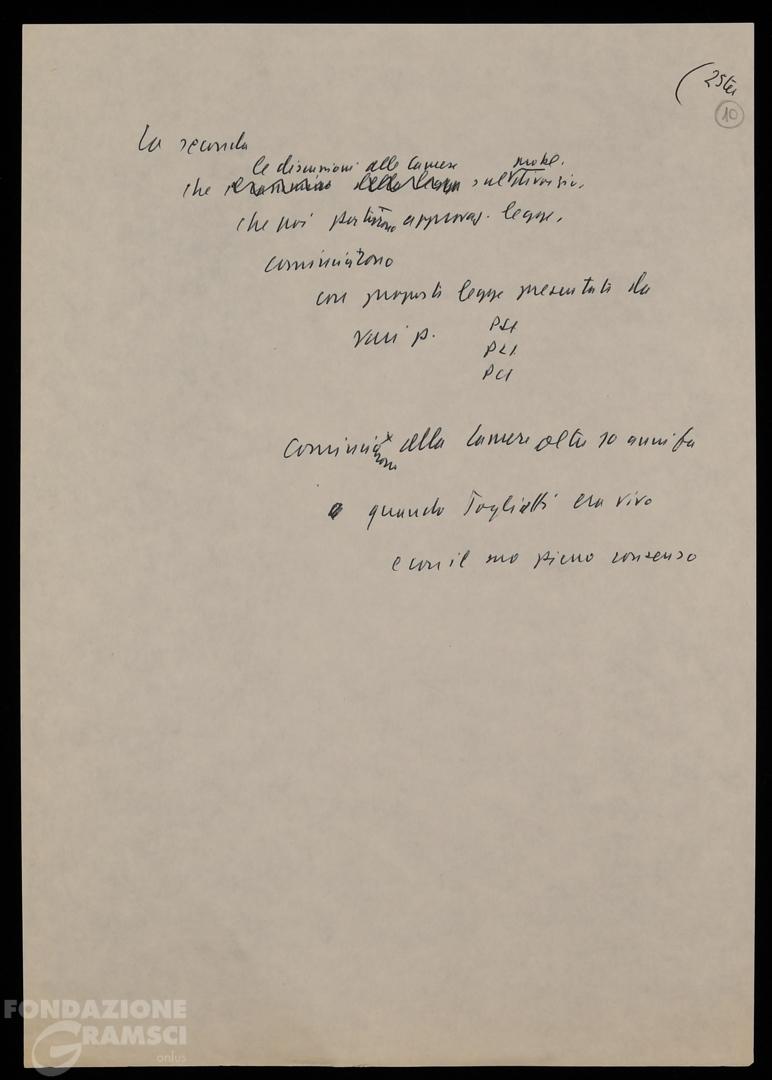 (25ter
10
La seconda
le discussioni alle Camere probl.
che sul divorzio,
che poi portarono approvaz. legge,
cominciarono
con proposte legge presentate da
vari p. PSI
PLI
PCI
Cominciarono alla Camera oltre 10 anni fa
quando Togliatti era vivo
e con il suo pieno consenso
FONDAZIONE
GRAMSCI
onlus